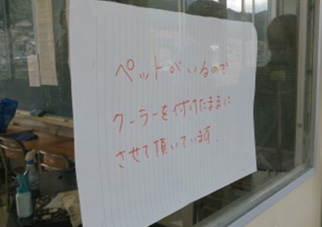 ペットがいるので
クーラーを付けたままに
させて頂いています.